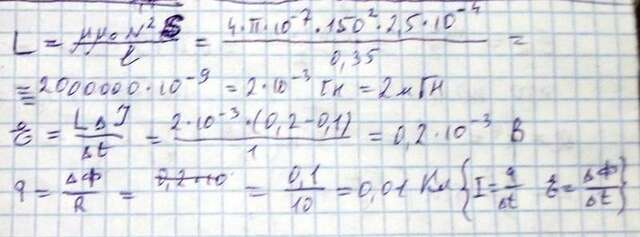 L = μμ₀N²S/l = 4·π·10⁻⁷·150²·25·10⁻⁴/0,35 =
= 2000000·10⁻⁹ = 2·10⁻³ Гн = 2 мГн
ℰ = LΔI/Δt = 2·10⁻³·(0,2-0,1)/1 = 0,2·10⁻³ В
q = ΔΦ/R = 0,2·10 = 0,1/10 = 0,01 Кл {I = q/Δt ℰ = ΔΦ/Δt}